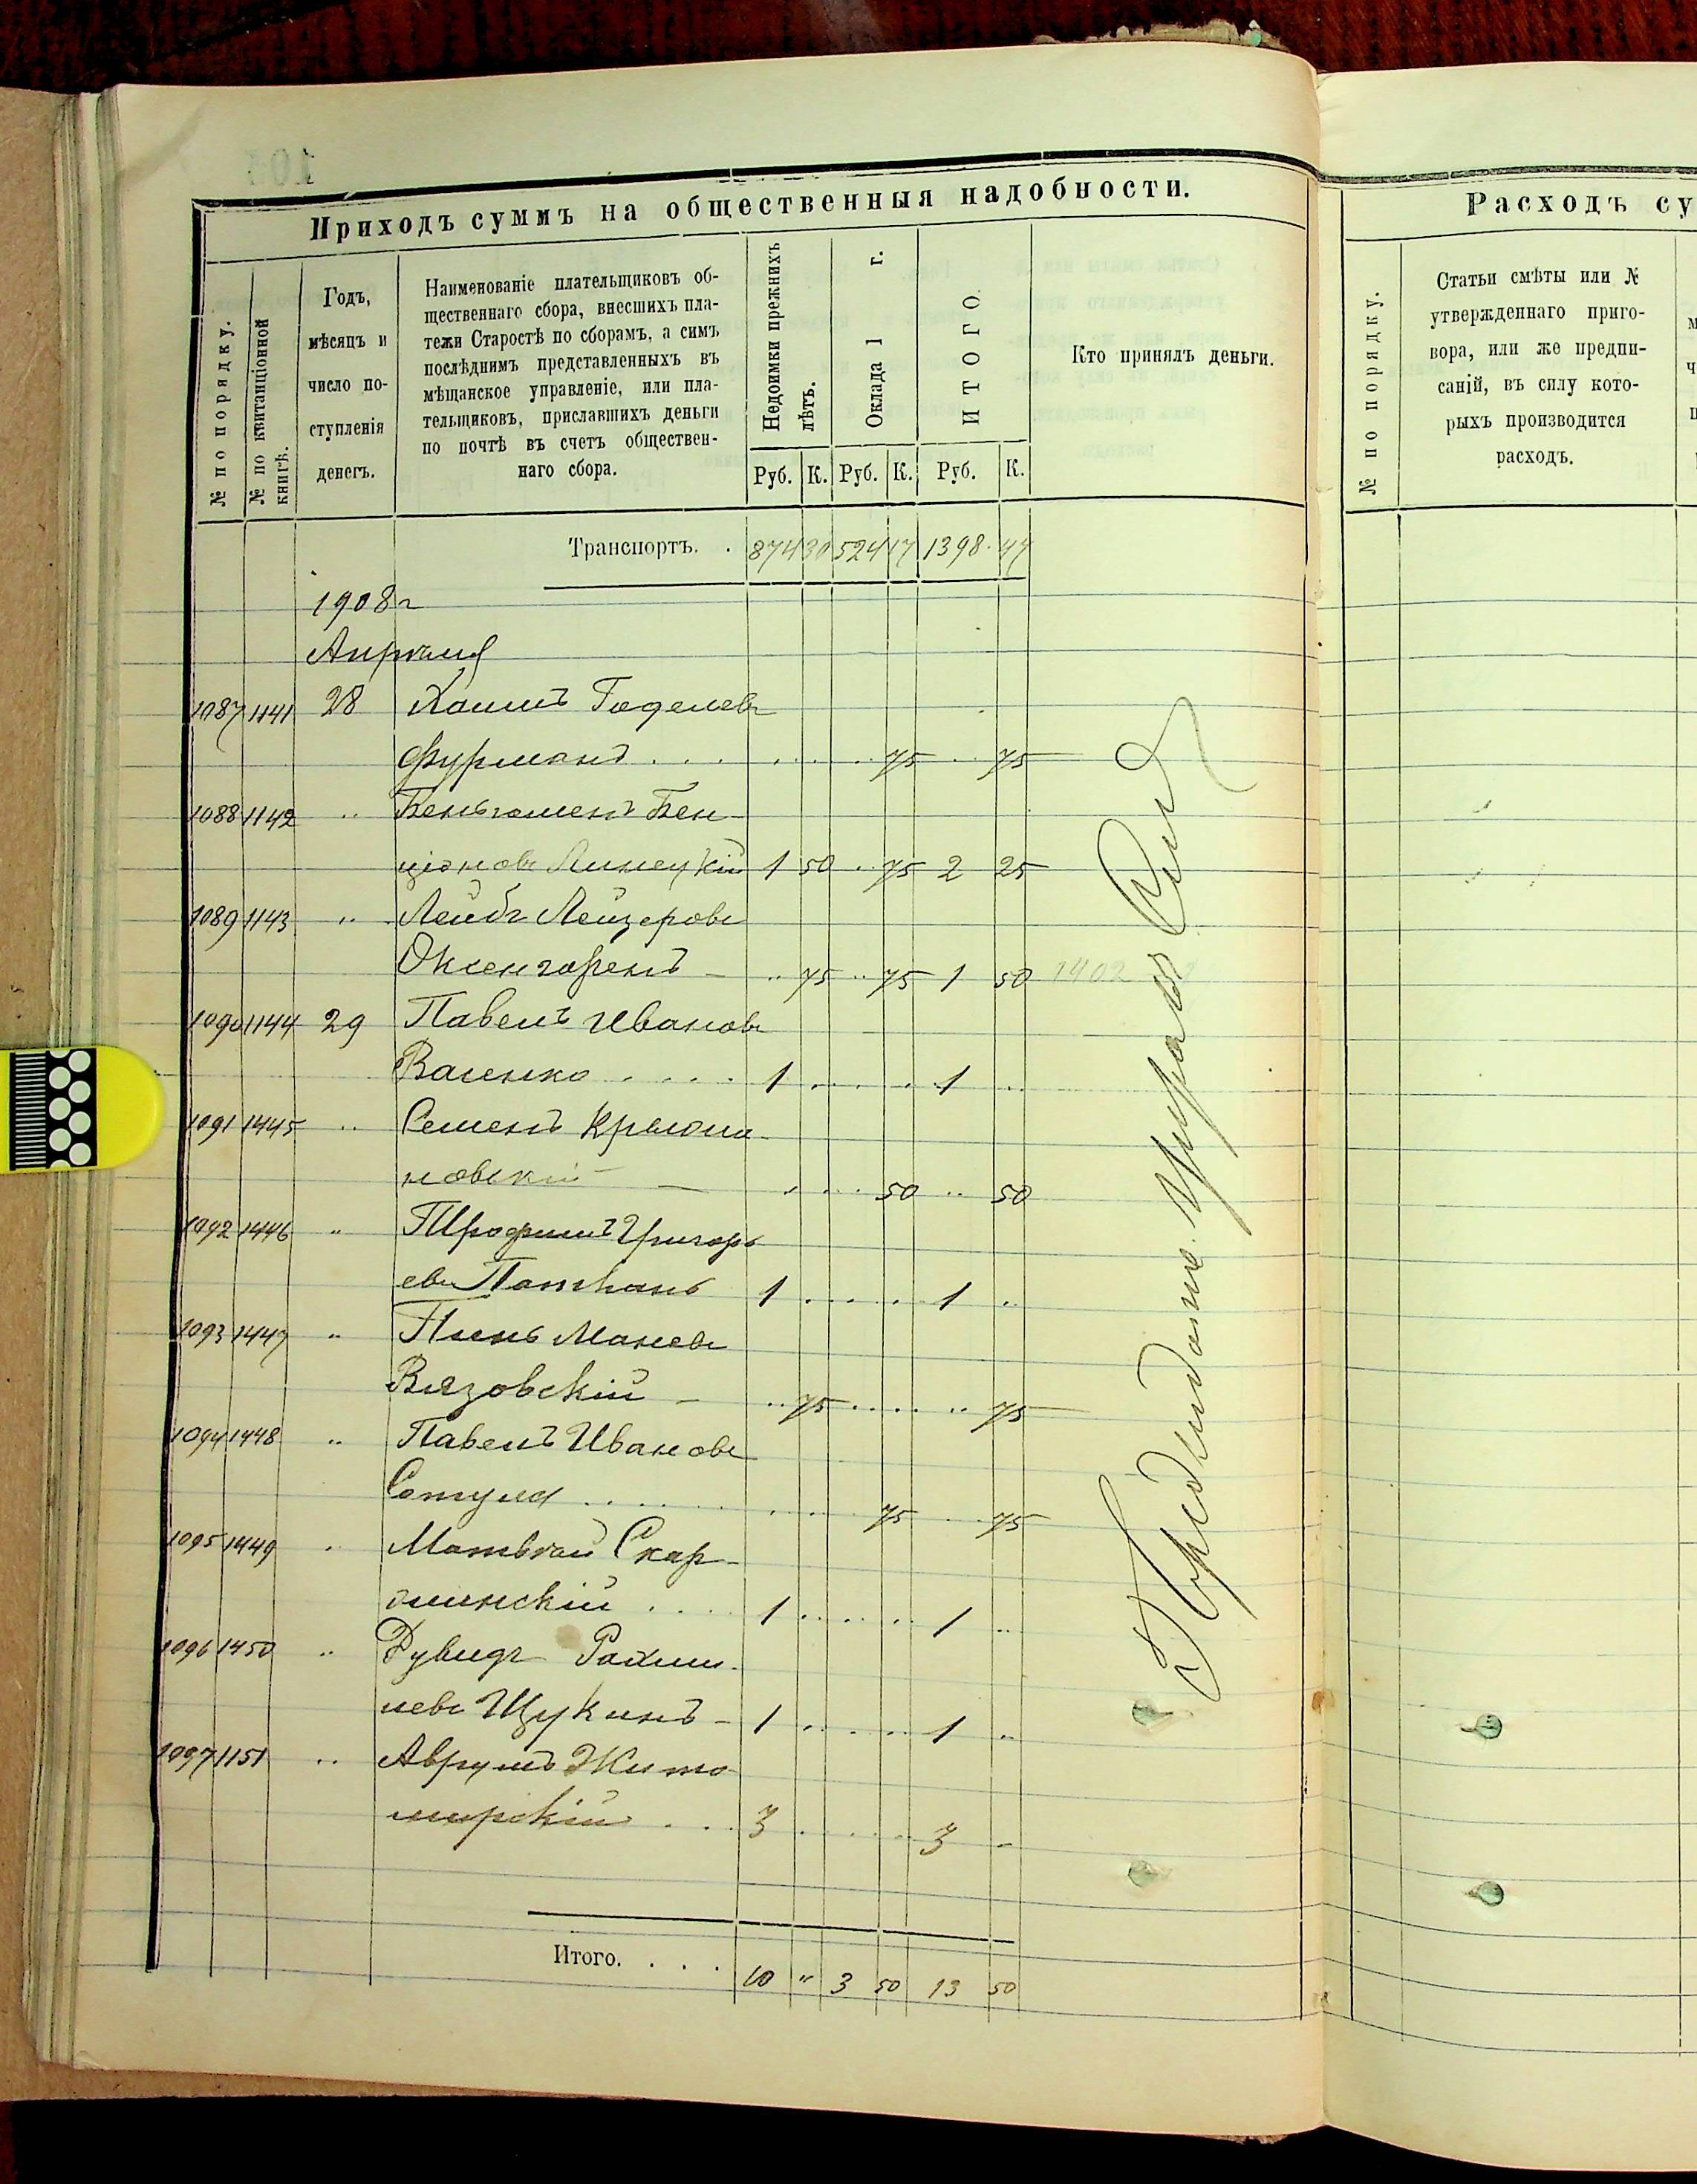 Приходъ суммъ на общественныя надобности.
№ по порядку.
№ по квитанціонной
книгѣ.
Годъ,
мѣсяцъ и
число по-
ступленія
денегъ.
Наименованіе плательщиковъ об-
щественнаго сбора, внесшихъ пла-
тежи Старостѣ по сборамъ, а симъ
послѣднимъ представленныхъ въ
мѣщанское управленіе, или пла-
тельщиковъ, приславшихъ деньги
по почтѣ въ счетъ обществен-
наго сбора.
Недоимки прежнихъ
лѣтъ.
Оклада 1 г.
ИТОГО
Руб. К. Руб. К. Руб. К.
Кто принялъ деньги.
Транспортъ. . 874 30 524 17 1398 47
1908 г
Апрѣля
1087 1141 28 Хаимъ Годелевъ
Фурманъ . . . 75 75
1088 1142 " Беньяменъ Бен-
ціоновъ Линецкій 1 50 75 2 25
1089 1143 " Лейбъ Лейзеровъ
Оксенгоренъ - 75 75 1 50 1402
1090 1144 29 Павелъ Ивановъ
Ваненко . . . . 1 1
1091 1445 "
Семенъ
новскій - 50 50
1092 1446 " Трофимъ Григорь
евъ 1 1
1093 1447 " Пинь Маневъ
Вязовскій - 75 75
1094 1448 " Павелъ Ивановъ
75 75
1095 1449 Матвѣй Скар-
жинскій . . . . 1 1
1096 1450 " Рувидъ Рахми-
левъ Щукинъ - 1 1
1097 1151 " Аврумъ Жито
мирскій . . . 3 3 -
Итого. . . . 10 " 3 50 13 50
Расходъ су
№ по порядку.
Статьи смѣты или №
утвержденнаго приго-
вора, или же предпи-
саній, въ силу кото-
рыхъ производится
расходъ.